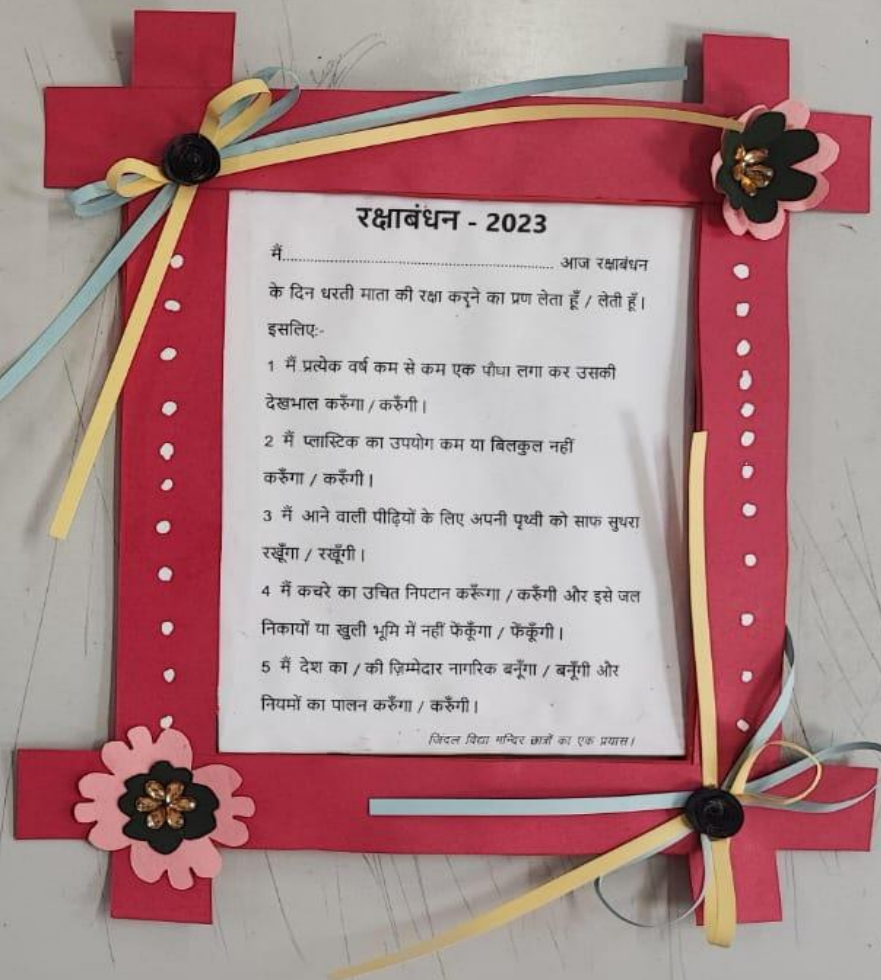 रक्षाबंधन - 2023
मैं.................................................................. आज रक्षाबंधन
के दिन धरती माता की रक्षा करने का प्रण लेता हूँ / लेती हूँ।
इसलिए:-
1 मैं प्रत्येक वर्ष कम से कम एक पौधा लगा कर उसकी
देखभाल करुँगा / करुँगी।
2 मैं प्लास्टिक का उपयोग कम या बिलकुल नहीं
करुँगा / करुँगी।
3 मैं आने वाली पीढ़ियों के लिए अपनी पृथ्वी को साफ सुथरा
रखूँगा / रखूँगी।
4 मैं कचरे का उचित निपटान करूँगा / करुँगी और इसे जल
निकायों या खुली भूमि में नहीं फेंकूँगा / फेंकूँगी।
5 मैं देश का / की ज़िम्मेदार नागरिक बनूँगा / बनूँगी और
नियमों का पालन करुँगा / करुँगी।
जिंदल विद्या मन्दिर छात्रों का एक प्रयास।